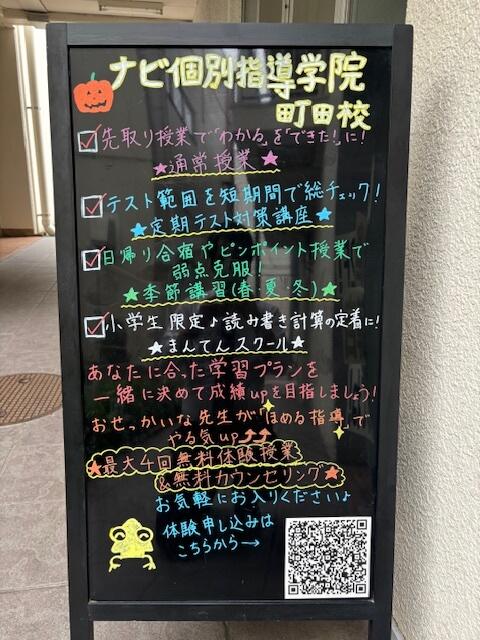 ナビ個別指導学院
町田校
先取り授業で「わかる」を「できた!」に!
★通常授業★
テスト範囲を短期間で総チェック!
★定期テスト対策講座★
日帰り合宿やピンポイント授業で
弱点克服!
★季節講習(春・夏・冬)★
小学生限定♪読み書き計算の定着に!
★まんてんスクール★
あなたに合った学習プランを
一緒に決めて成績upを目指しましょう!
おせっかいな先生が「ほめる指導」で
やる気up⤴⤴
★最大4回無料体験授業
&無料カウンセリング★
お気軽にお入りください♪
体験申し込みは
こちらから→